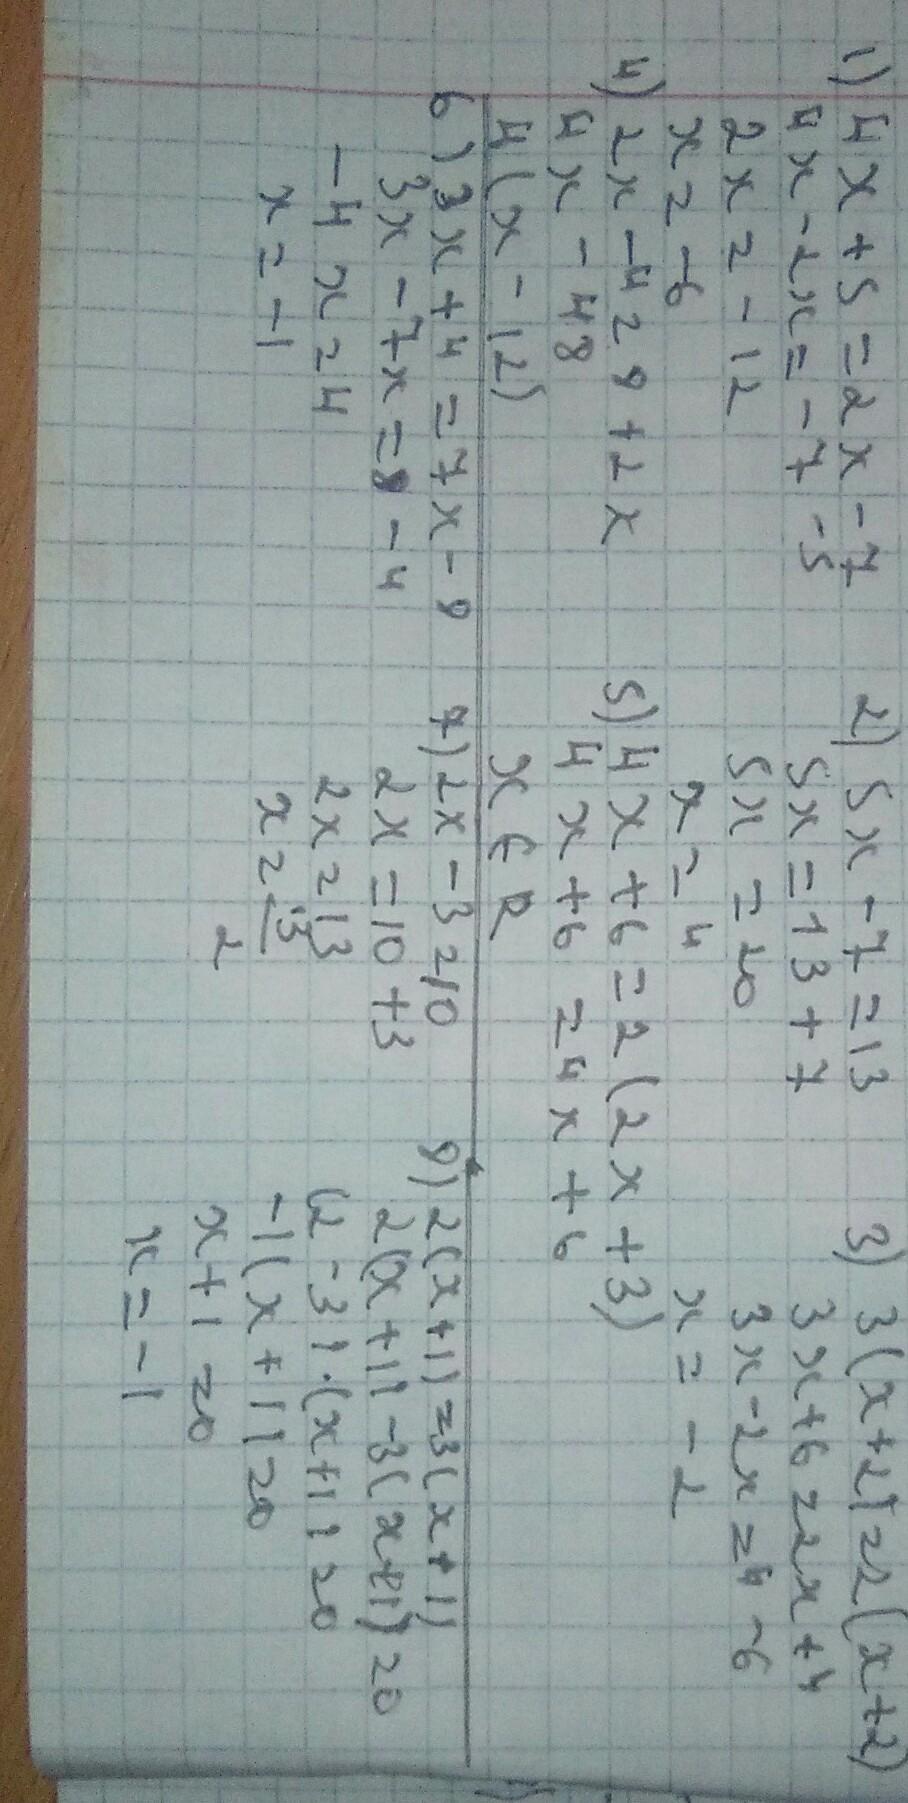 1) 4x + 5 = 2x - 7
4x - 2x = -7 - 5
2x = -12
x = -6
2) 5x - 7 = 13
5x = 13 + 7
5x = 20
x = 4
3) 3(x+2) = 2(x+2)
3x + 6 = 2x + 4
3x - 2x = 4 - 6
x = -2
4) 2x - 4 = 8 + 2x
4x - 48
4(x - 12)
5) 4x + 6 = 2(2x + 3)
4x + 6 = 4x + 6
x ∈ R
6) 3x + 4 = 7x - 8
3x - 7x = 8 - 4
-4x = 4
x = -1
7) 2x - 3 = 10
2x = 10 + 3
2x = 13
x = 13/2
8) 2(x+1) = 3(x+1)
2(x+1) - 3(x+1) = 0
(2-3)·(x+1) = 0
-1(x+1) = 0
x + 1 = 0
x = -1